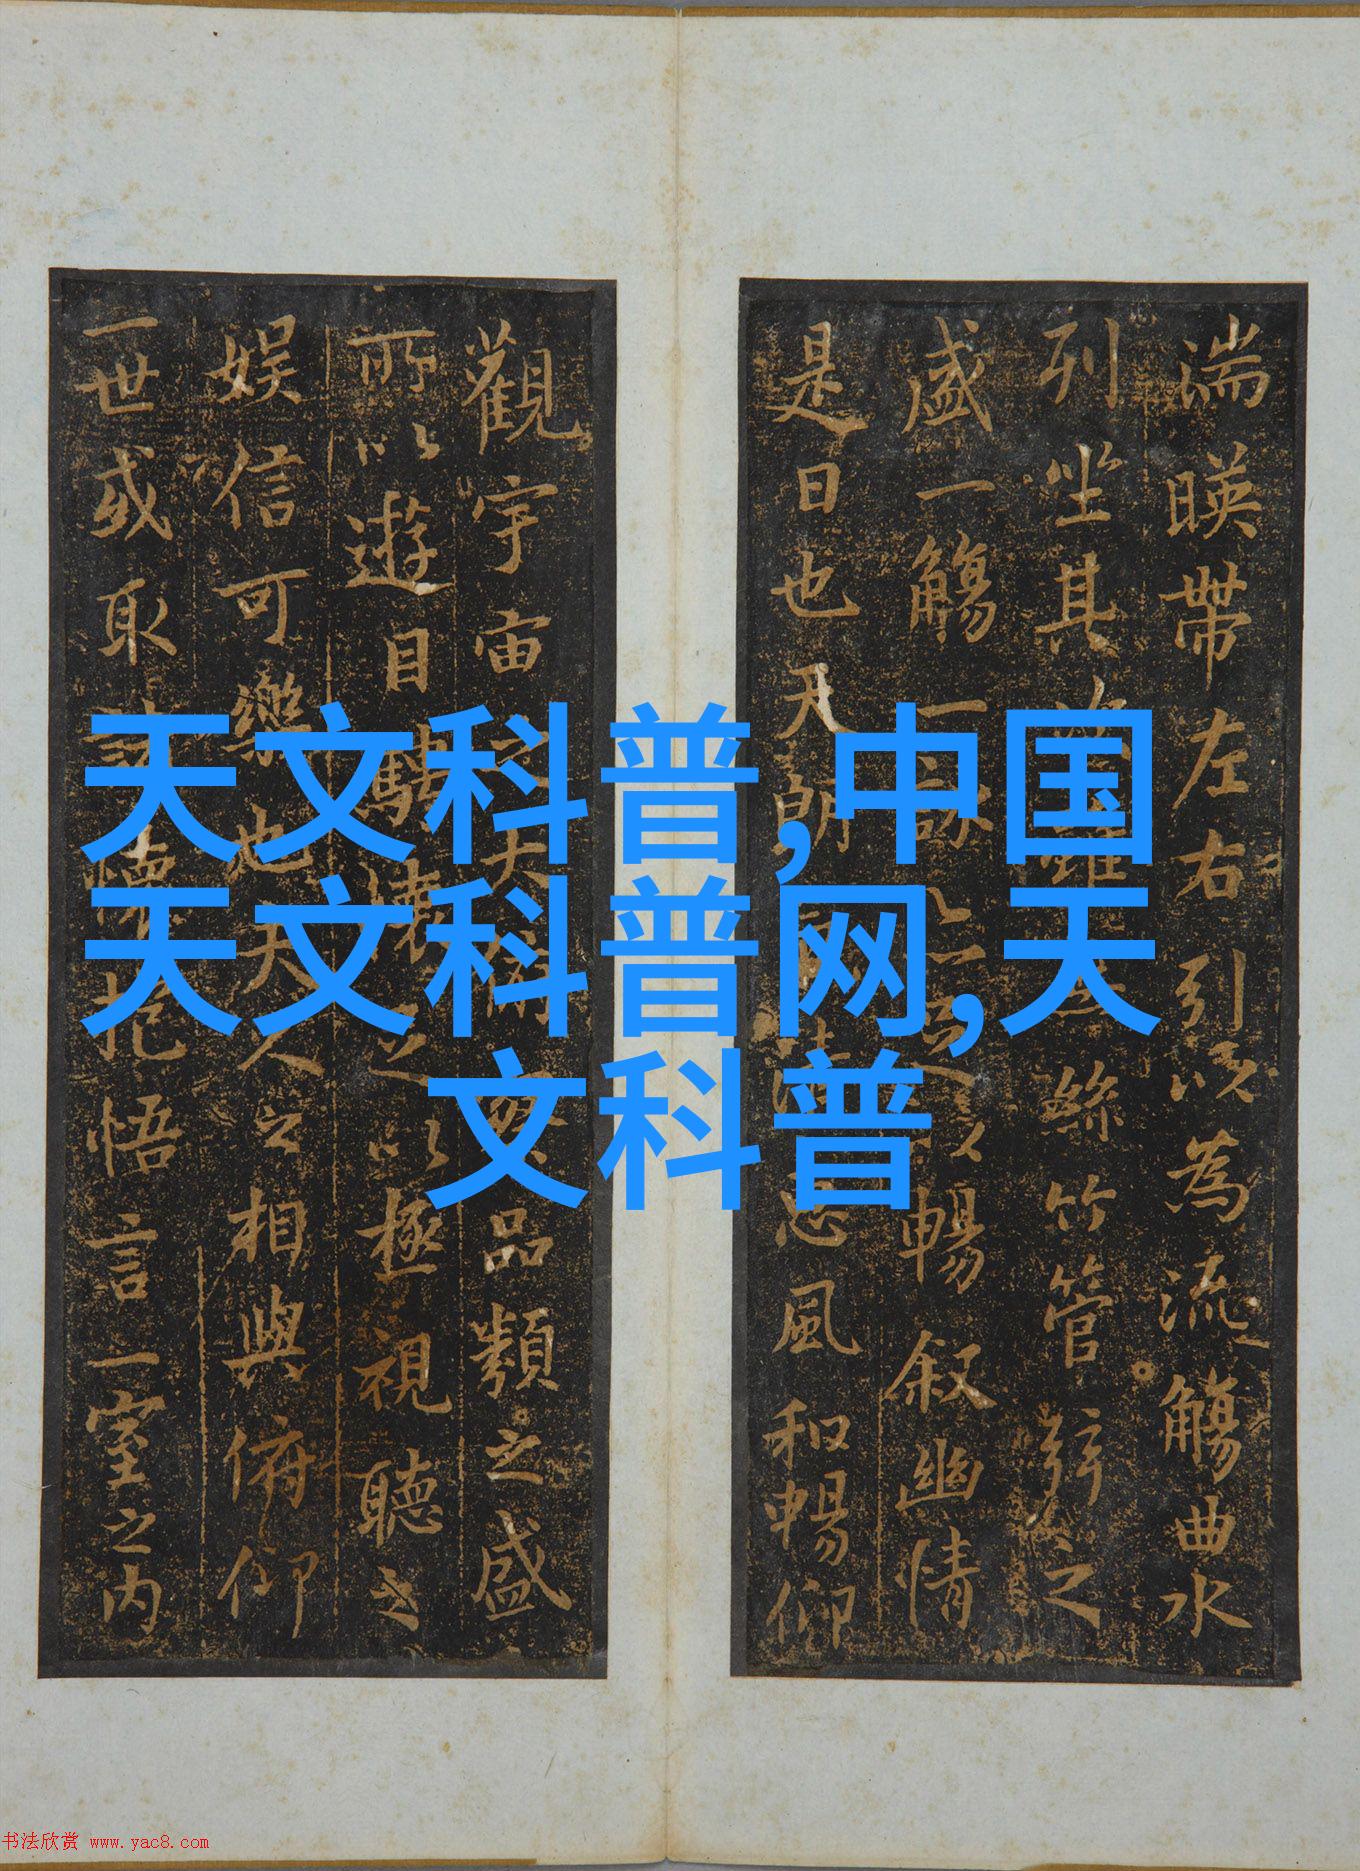 天文科普,中国
天文科普网,天
文科普
湍暎帶左右引以為流觴曲水
列坐其次絲竹管弦之
盛一觴一詠足以暢叙幽情
是日也天朗惠風和暢仰
觀宇宙之大俯品類之盛
所以遊目騁懷足以極視聽之
娱信可樂也夫人之相與俯仰
一世或取諸懷抱悟言一室之内
书法欣赏 www.yac8.com